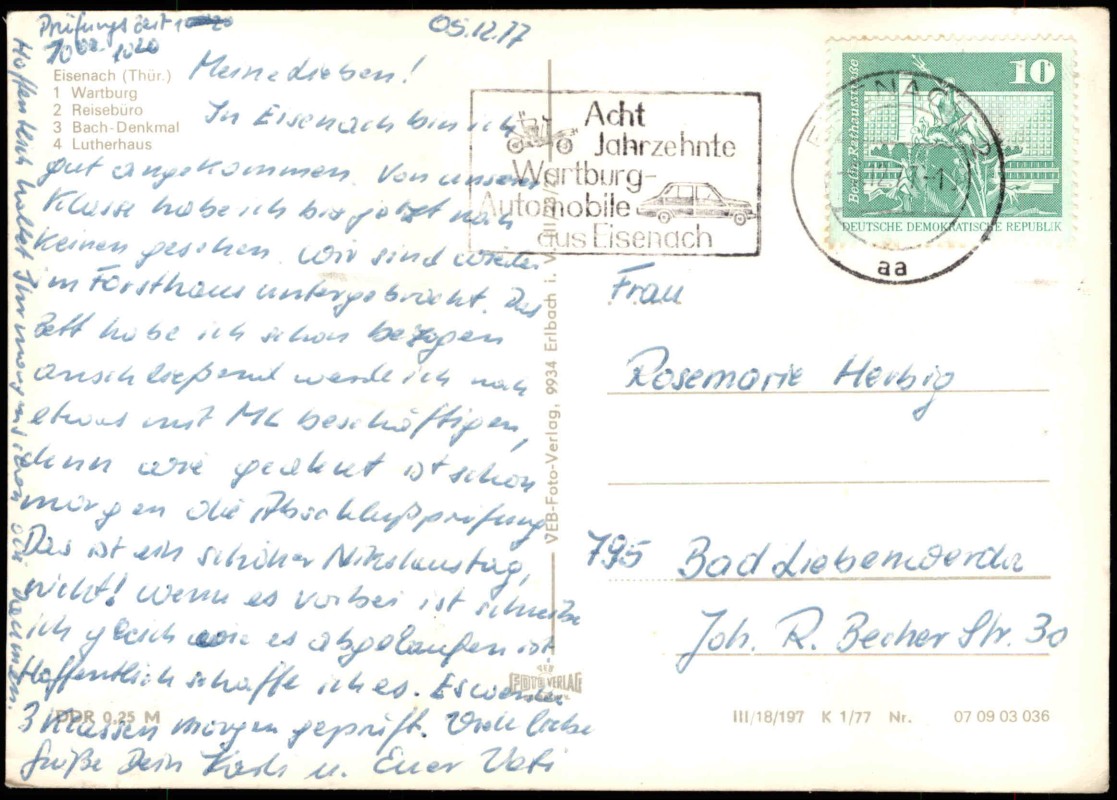 Prüfungszeit
10⁰⁰ 10²⁰
05.12.77
Eisenach (Thür.)
1 Wartburg
2 Reisebüro
3 Bach-Denkmal
4 Lutherhaus
Meine Lieben!
In Eisenach bin ich
gut angekommen. Von unserer
Klasse habe ich bis jetzt noch
keinen gesehen. Wir sind wieder
im Forsthaus untergebracht. Das
Bett habe ich schon bezogen
anschließend werde ich noch
etwas mit ML beschäftigen,
denn wie geahnt ist schon
morgen die Abschlußprüfung
Das ist ein schöner Nikolaustag,
nicht! Wenn es vorbei ist schreibe
ich gleich wie es abgelaufen ist.
Hoffentlich schaffe ich es. Es werden
3 Klassen morgen geprüft. Viele liebe
Grüße Dein Karli u. Euer Vati
Hoffentlich haltet Ihr morgen schon die Daumen.
DDR 0,25 M
VEB-Foto-Verlag, 9934 Erlbach i. V.
FOTO VERLAG
Acht
Jahrzehnte
Wartburg-
Automobile
aus Eisenach
EISENACH
aa
10
Berlin-Rathausstraße
DEUTSCHE DEMOKRATISCHE REPUBLIK
Frau
Rosemarie Herbig
795 Bad Liebenwerda
Joh. R. Becher Str. 30
III/18/197 K 1/77 Nr. 07 09 03 036